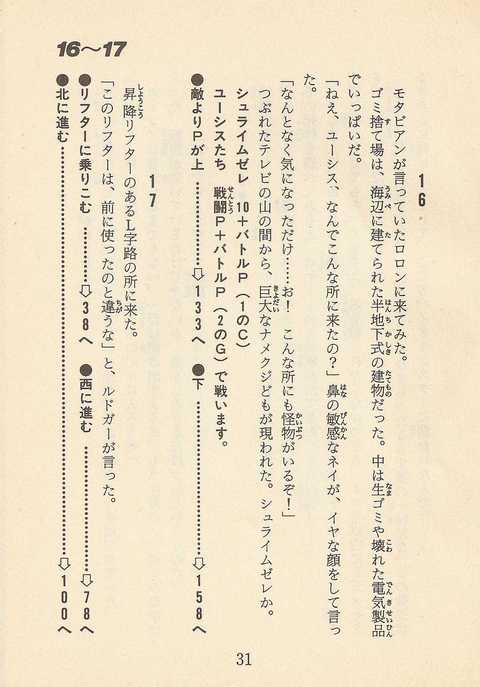 16〜17
16
モタビアンが言っていたロロンに来てみた。
ゴミ捨て場は、海辺に建てられた半地下式の建物だった。中は生ゴミや壊れた電気製品
でいっぱいだ。
「ねえ、ユーシス、なんでこんな所に来たの？」鼻の敏感なネイが、イヤな顔をして言っ
た。
「なんとなく気になっただけ……お！　こんな所にも怪物がいるぞ！」
つぶれたテレビの山の間から、巨大なナメクジどもが現われた。シュライムゼレか。
シュライムゼレ　10＋バトルP（1のC）
ユーシスたち　戦闘P＋バトルP（2のG）で戦います。
●敵よりPが上………⇨133へ　●下………⇨158へ
17
昇降リフターのあるL字路の所に来た。
「このリフターは、前に使ったのと違うな」と、ルドガーが言った。
●リフターに乗りこむ………⇨38へ　●西に進む………⇨78へ
●北に進む………⇨100へ
31